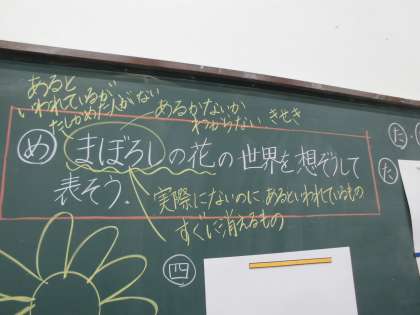 あると
いわれているが
たしかめた人がない
あるかないか
わからない きせき
め まぼろしの花の世界を想ぞうして
表そう.
実際にないのにあるといわれているもの
すぐに消えるもの
四
た
た